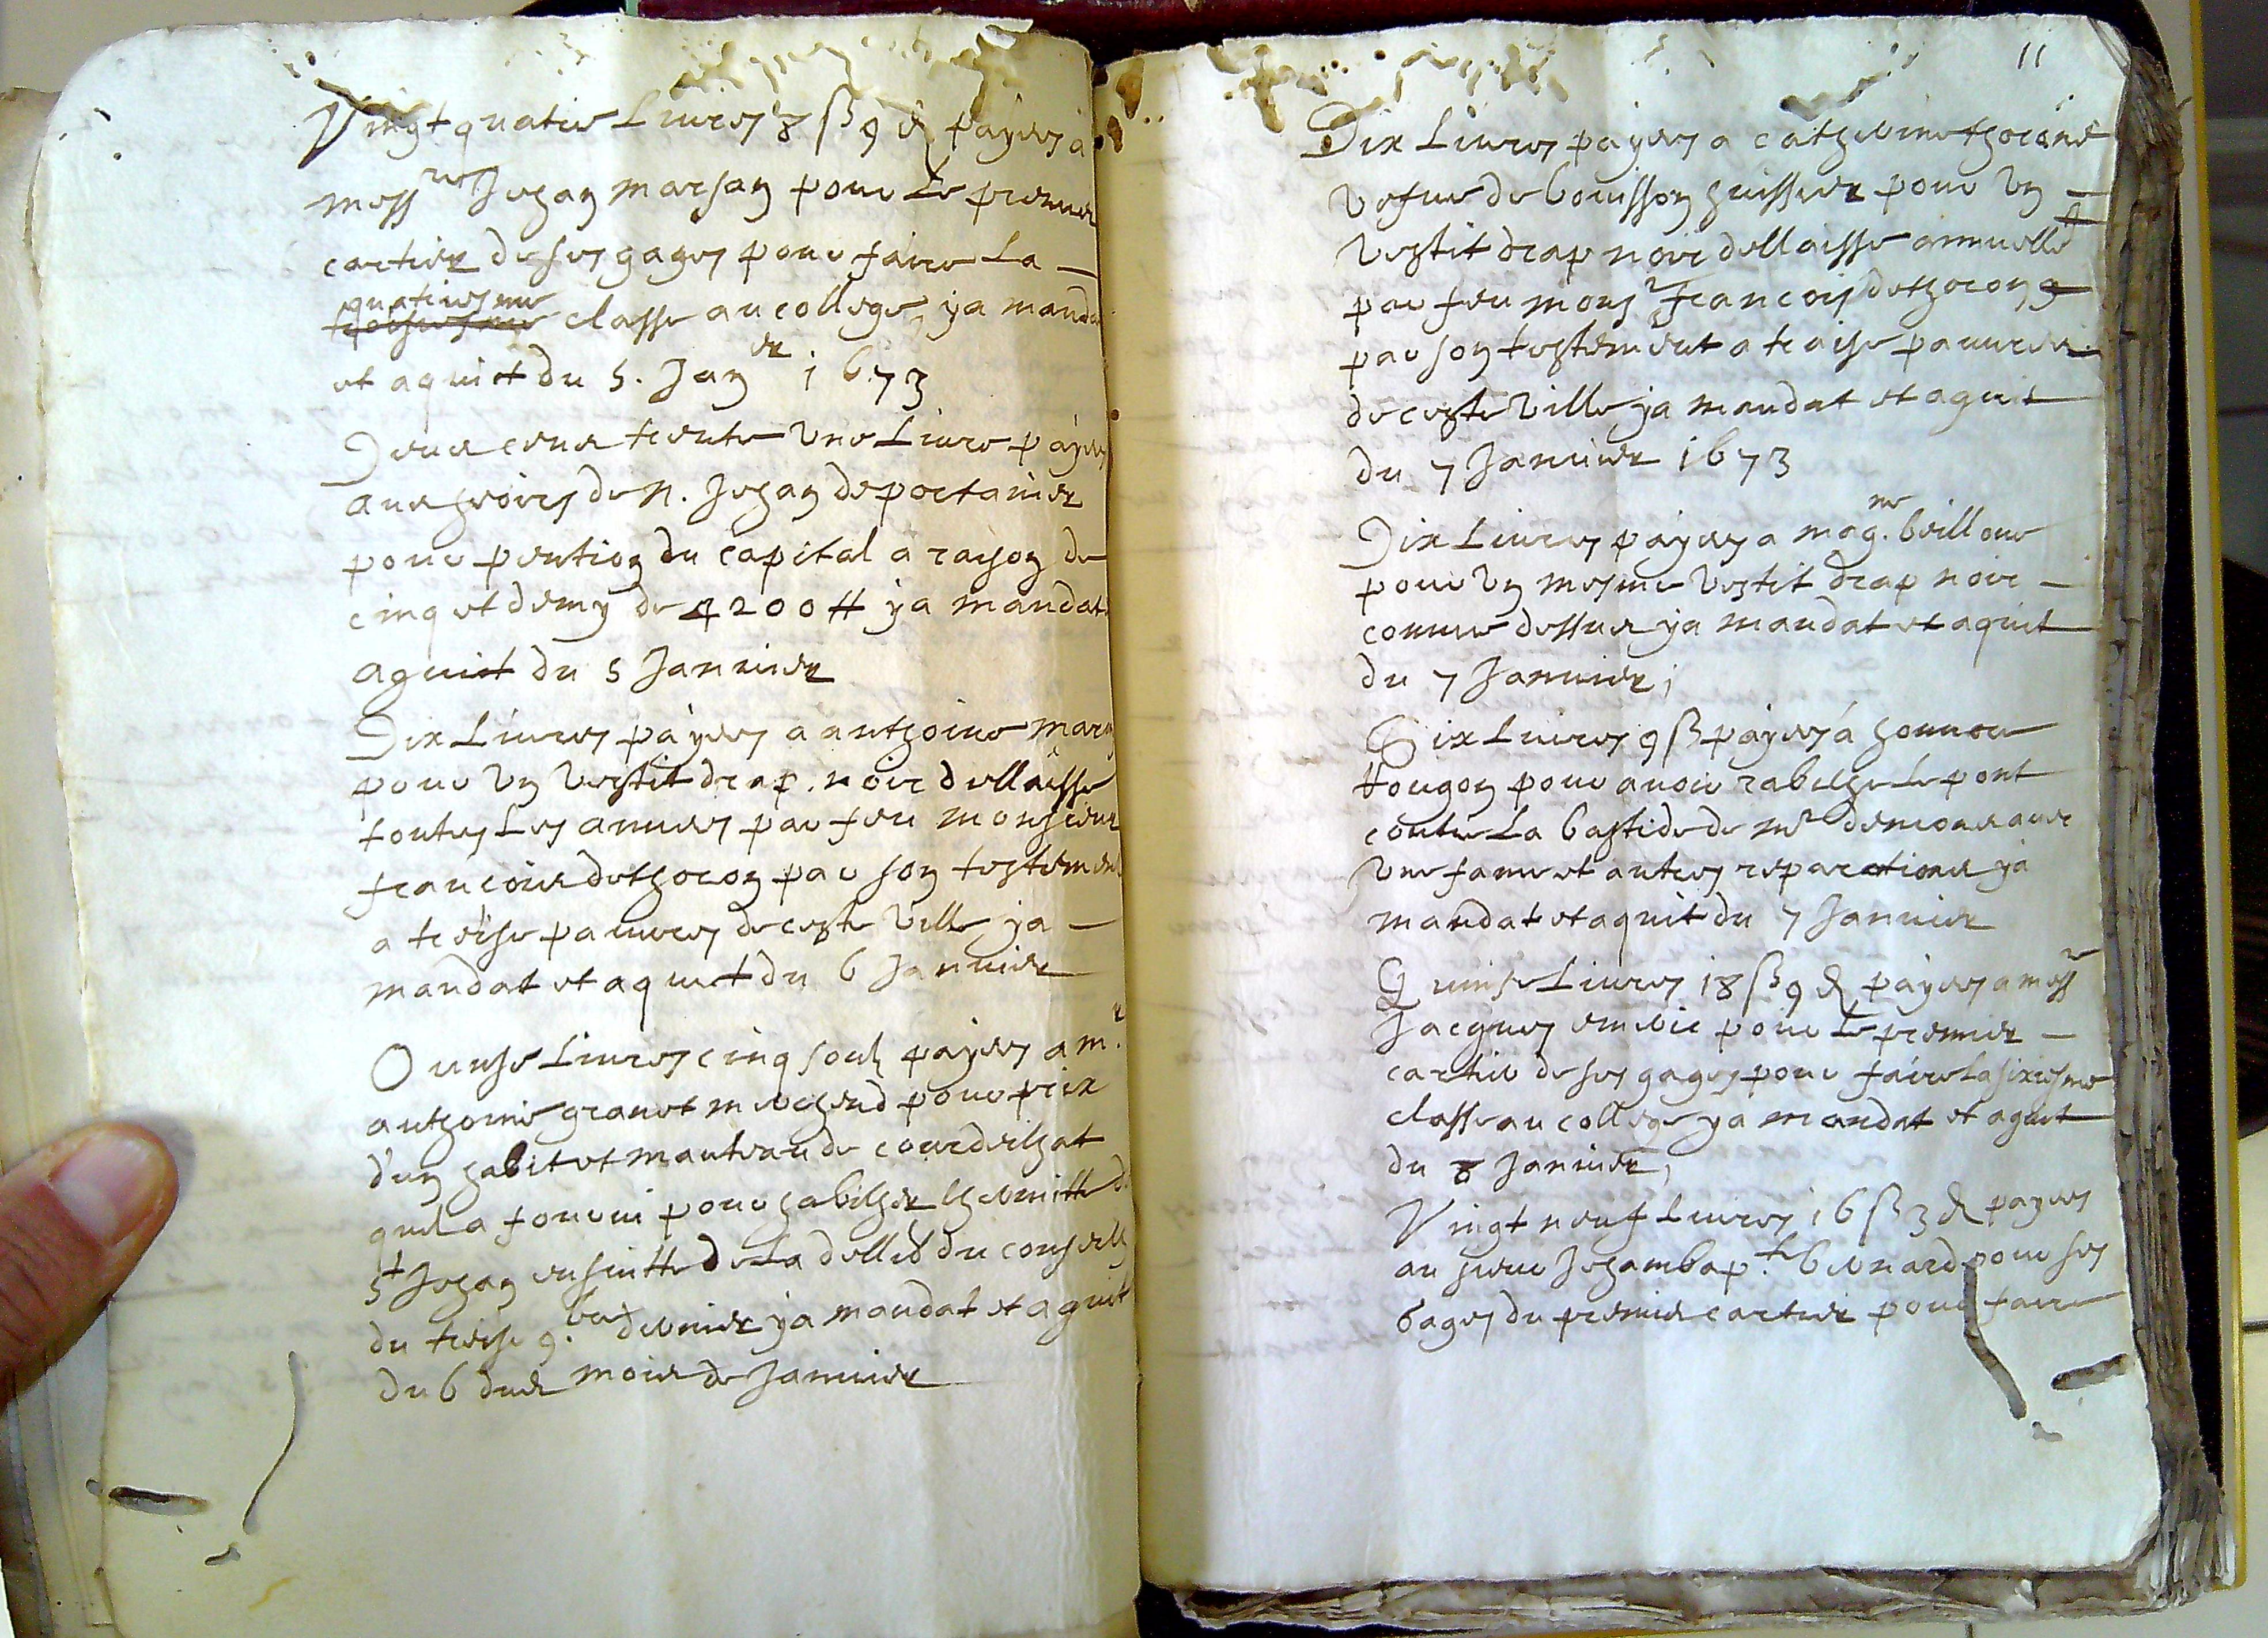 Vingt quatre Livres 8 ß 9 d payes a
mess.re Jehan marsan pour Le premier
cartier de ses gages pour faire La
quatriesme
classe au college ya manda
et aquict du 5. Jan.er 1673
Deux cens trente une Livre payes
aux hoirs de n. Jehan de portanier
pour pention du capital a raison de
cinq et demy de 4200 # ya mandat
aquict du 5 Januier
Dix Livres payees a anthoine
pour un vestit drap noir dellaisse
toutes Les annees par feu monsieur
francois dethoron par son testemen
a treise pauvres de ceste ville ya
mandat et aquict du 6 Januier
Ounse Livres cinq soulz payes a m.r
anthoine granet merchend pour prix
d'un habit et manteau de courdeilhat
quil a fourni pour habilher Lhermitte d
St Jehan ensuitte de La dellib du conseilh
du treise 9.bre dernier ya mandat et aquit
du 6 dud mois de Januier
11
Dix Livres payees a catherine thorone
vefue de bouisson huissier pour un
vestit drap noir dellaisse annuelle
par feu mons.r francois dethoron
par son testement a treise pauvres
de ceste ville ya mandat et aquit
du 7 Januier 1673
Dix Livres payees a mag.ne
pour un mesme vestit drap noir
comme dessus ya mandat et aquit
du 7 Januier,
Six Livres 9 ß payes a honnore
pour avoir rabilhe Le pont
contre La bastide de m.r
une fame et autres reparations ya
mandat et aquit du 7 Januier
Quinse Livres 18 ß 9 d payees a mess.re
Jacques emeric pour Le premier
cartier de ses gages pour faire La sixiesme
classe au college ya mandat et aquit
du 8 Januier,
Vingt neuf Livres 16 ß 3 d payes
au sieur Jehambap.te bernard pour ses
gages du premier cartier pour faire